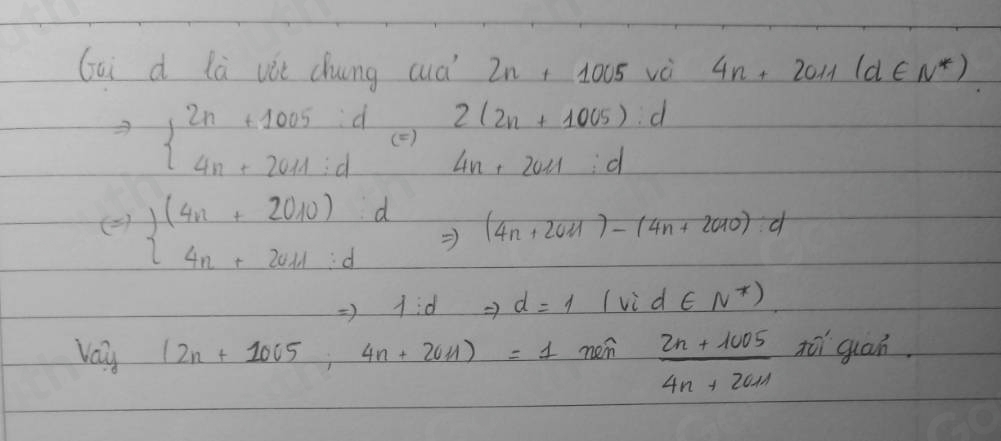 Gọi d là ước chung của 2n + 1005 và 4n + 2011 (d ∈ N*).
⇒ { 2n + 1005 ⋮ d (=) 2(2n + 1005) ⋮ d
4n + 2011 ⋮ d 4n + 2011 ⋮ d
(=) { (4n + 2010) ⋮ d ⇒ (4n + 2011) - (4n + 2010) ⋮ d
4n + 2011 ⋮ d
⇒ 1 ⋮ d ⇒ d = 1 (vì d ∈ N*)
Vậy (2n + 1005 ; 4n + 2011) = 1 nên (2n + 1005)/(4n + 2011) tối giản.